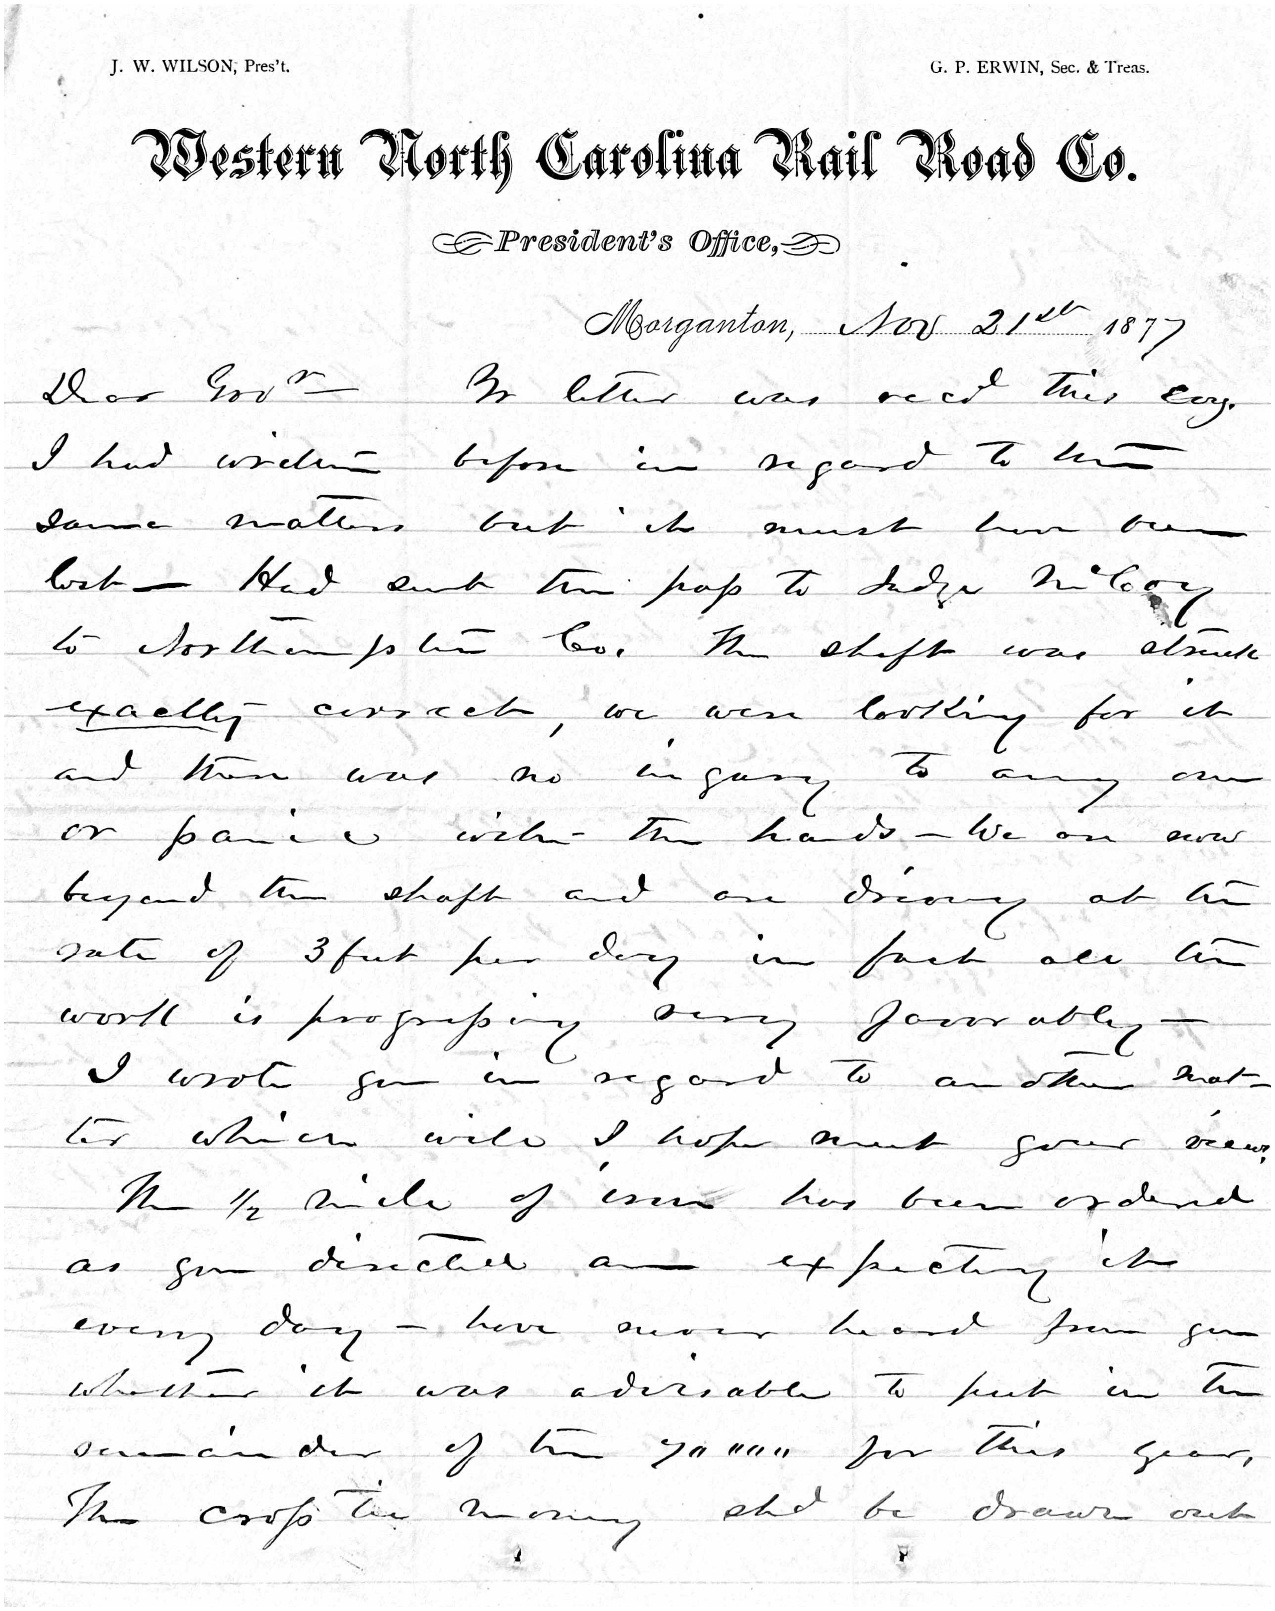 J. W. WILSON, Pres't.
G. P. ERWIN, Sec. & Treas.
Western North Carolina Rail Road Co.
President's Office,
Morganton, Nov 21st 1877
Dear Govr — Yr letter was recd this evg.
I had written before in regard to the
same matters but it must have been
lost — Had sent the pass to Judge McCoy
to Northampton Co. The shaft was struck
exactly correct, we were looking for it
and there was no injury to any one
or panic with the hands — We are now
beyond the shaft and are driving at the
rate of 3 feet per day in fact all the
work is progressing very favorably —
I wrote you in regard to another mat-
ter which will I hope meet your views.
The 1/2 mile of iron has been ordered
as you directed am expecting it
every day — have never heard from you
whether it was advisable to put in the
remainder of the for this year,
The cross tie money shd be drawn out